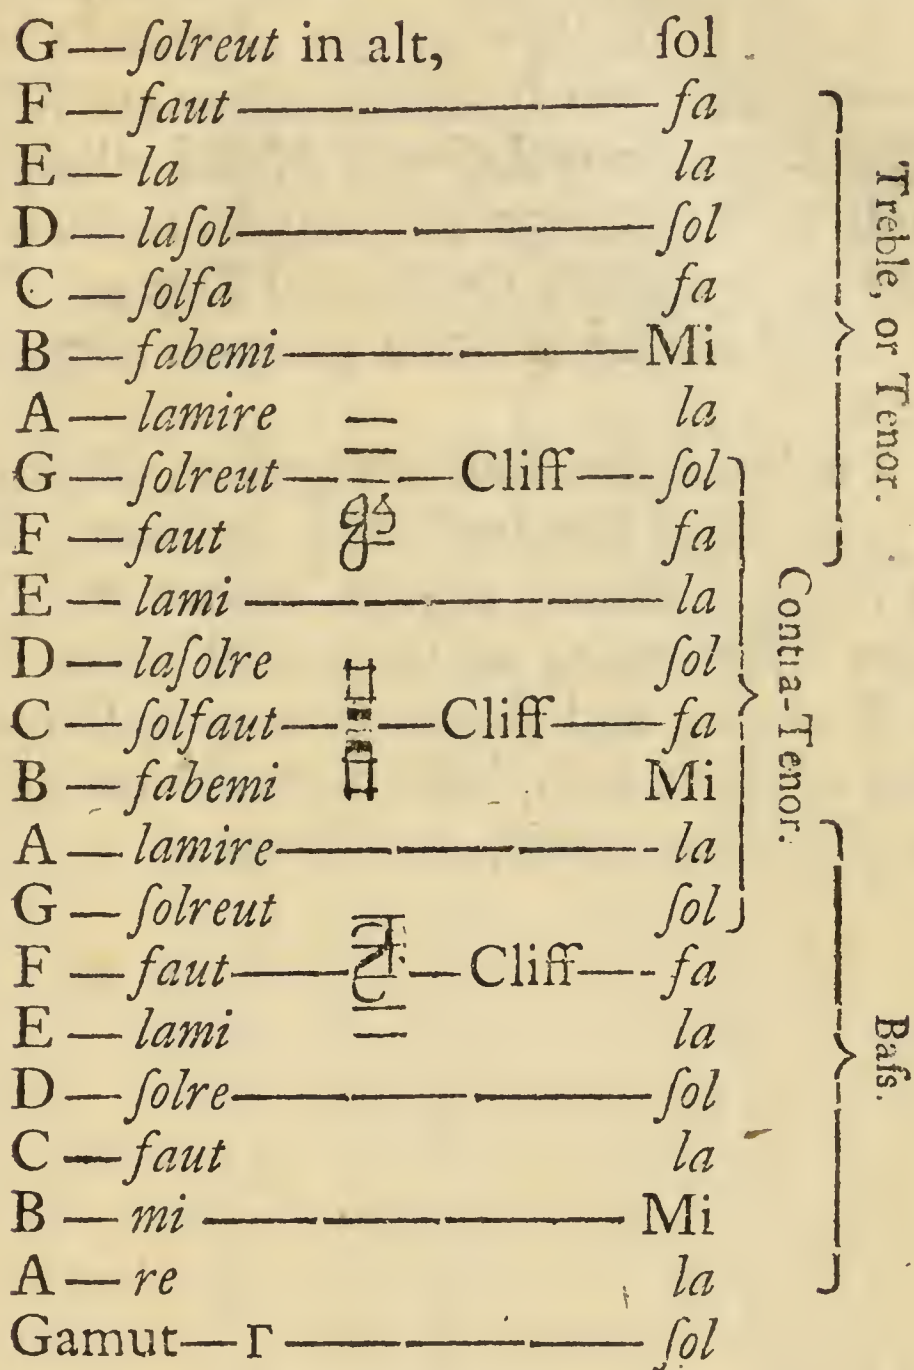 G — ſolreut in alt, ſol
F — faut ——— fa
E — la la
D — laſol ——— ſol
C — ſolfa fa
B — fabemi ——— Mi
A — lamire la
G — ſolreut — Cliff — ſol
F — faut fa
E — lami ——— la
D — laſolre ſol
C — ſolfaut — Cliff — fa
B — fabemi Mi
A — lamire ——— la
G — ſolreut ſol
F — faut — Cliff — fa
E — lami la
D — ſolre ——— ſol
C — faut la
B — mi ——— Mi
A — re la
Gamut — Γ ——— ſol
Treble, or Tenor.
Contra-Tenor.
Baſs.